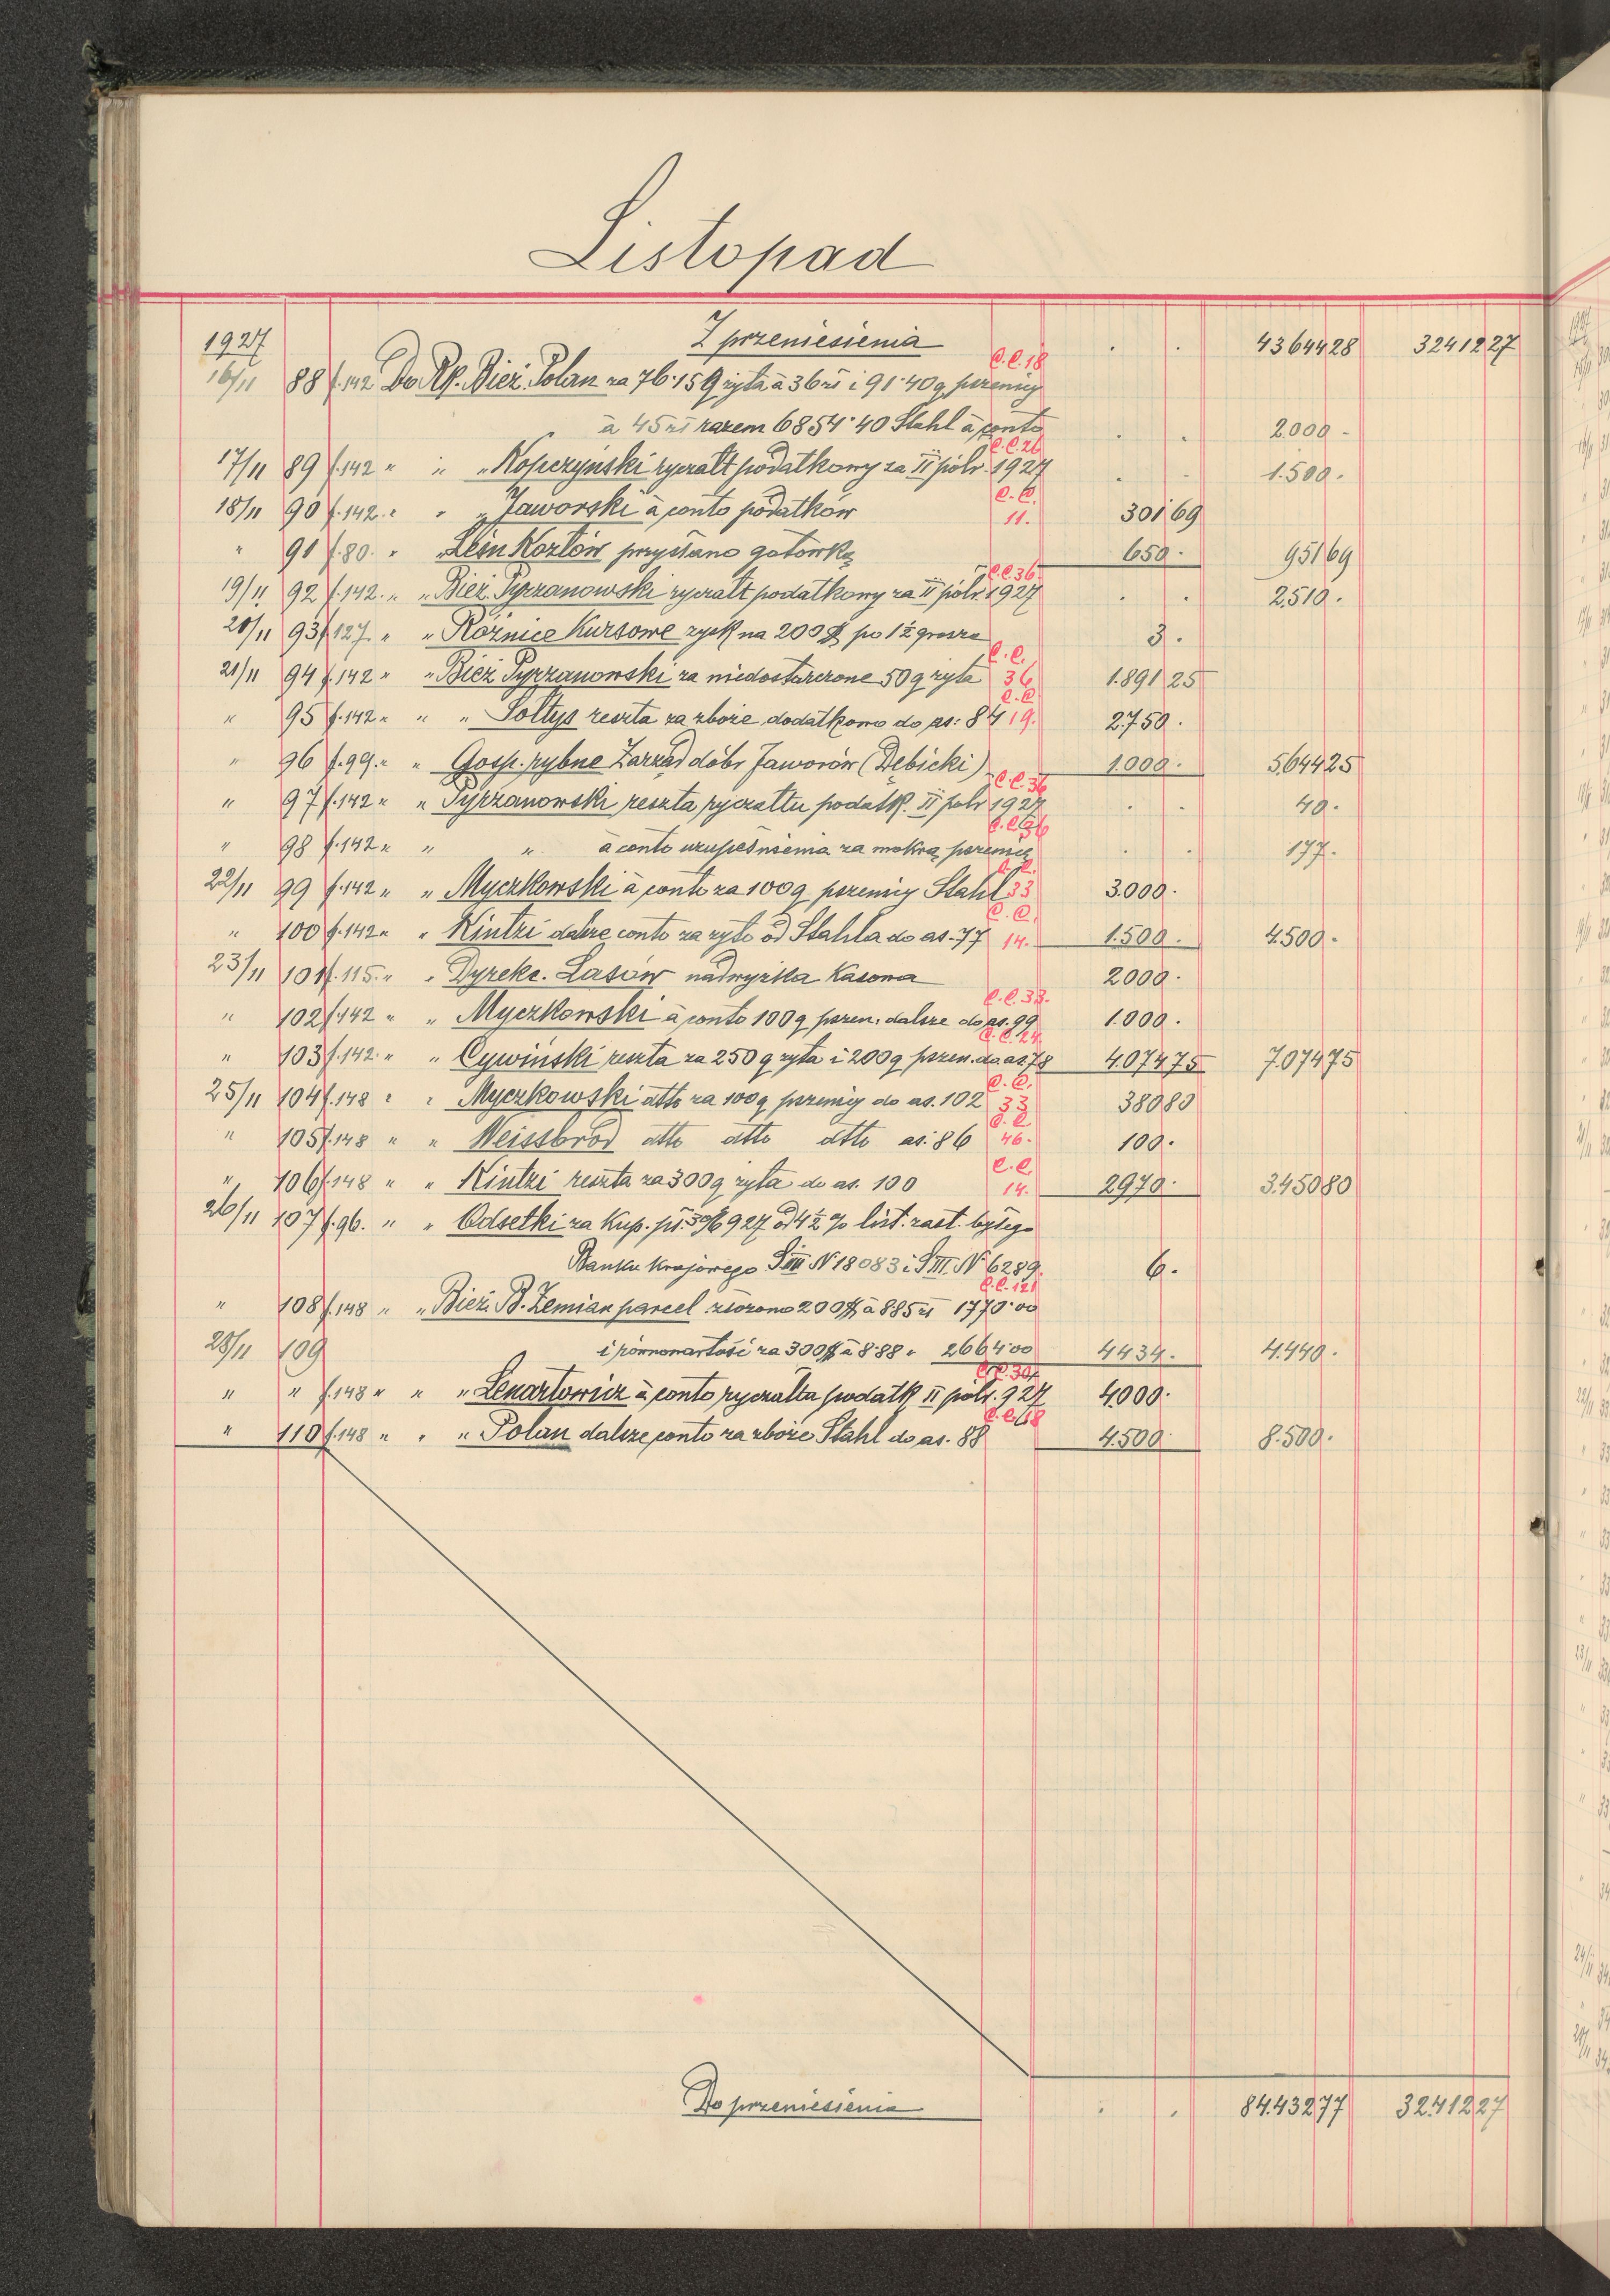 Listopad
1927 Z przeniesienia . . 43644 28 32412 27
C.C.18
16/11 88 f.142 Do Rp. Bież. Polan za 76·15 q żyta à 36 zł i 91·40 q pszenicy
à 45 zł razem 6854·40 Stahl à conto . . 2.000 -
C.C.26
17/11 89 f.142 " " " Kopczyński ryczałt podatkowy za II półr. 1927 . . 1.500 .
18/11 90 f.142 " " " Jaworski à conto podatków C.C. 11. 301 69
" 91 f.80. " Leśn Kozłów przysłano gotówką 650 . 951 69
C.C.36
19/11 92 f.142. " " Bież. Pyrzanowski ryczałt podatkowy za II półr. 1927 . . 2.510 .
20/11 93 f.127. " " Różnice Kursowe zysk na 200 $ po 1½ grosza 3 .
21/11 94 f.142 " " Bież Pyrzanowski za niedostarczone 50 q żyta C.C. 36 1.891 25
" 95 f.142 " " " Sołtys reszta za zboże dodatkowo do as: 84 C.C. 19. 2.750 .
" 96 f.99. " " Gosp. rybne Zarząd dóbr Jaworów (Dębicki) 1.000 . 5,644 25
C.C.36
" 97 f.142 " " Pyrzanowski reszta ryczałtu podatk. II półr 1927 . . 40 .
C.C.36
" 98 f.142 " " " à conto uzupełnienia za mokrą pszenicę . . 177 .
22/11 99 f.142 " " Myczkowski à conto za 100 q pszenicy Stahl C.C. 33 3.000 .
" 100 f.142 " " Kintzi dalsze conto za żyto od Stahla do as. 77 C.C. 14. 1.500 . 4.500 .
23/11 101 f.115. " " Dyrekc. Lasów nadwyżka Kasowa 2000 .
C.C.33.
" 102 f.142 " " Myczkowski à conto 100 q pszen. dalsze do as. 99 1.000 .
C.C.24
" 103 f.142. " " Cywiński reszta za 250 q żyta i 200 q pszen. do as 78 4.074 75 7.074 75
25/11 104 f.148 " " Myczkowski dtto za 100 q pszenicy do as. 102 C.C. 33 380 80
" 105 f.148 " " Weissbrod dtto dtto dtto as: 86 C.C. 46. 100 .
" 106 f.148 " " Kintzi reszta za 300 q żyta do as. 100 C.C. 14. 2970 . 3.450 80
26/11 107 f.96. " " Odsetki za Kup. pł. 30/6 927 od 4½ % list. zast. byłego
Banku Krajowego S III N 18083 i S III. N 6289. 6 .
C.C.121
" 108 f.148 " " Bież. B. Ziemian parcel. złożono 200 $ à 8.85 zł 1770·00
28/11 109 i równowartość za 300 $ à 8·88 " 2664·00 4434 . 4.440 .
C.C.30
" " f.148 " " " Lenartowicz à conto ryczałtu podatk II półr. 927 4.000 .
C.C.18
" 110 f.148 " " " Polan dalsze conto za zboże Stahl do as. 88 4.500 . 8.500 .
Do przeniesienia . . 84.432 77 32.412 27